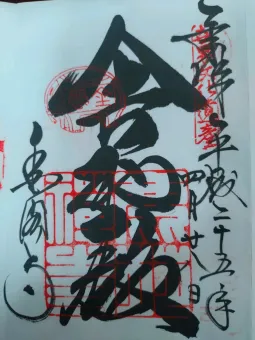 奉拝 平成二十五年
四月廿八日
舎利殿
金閣寺